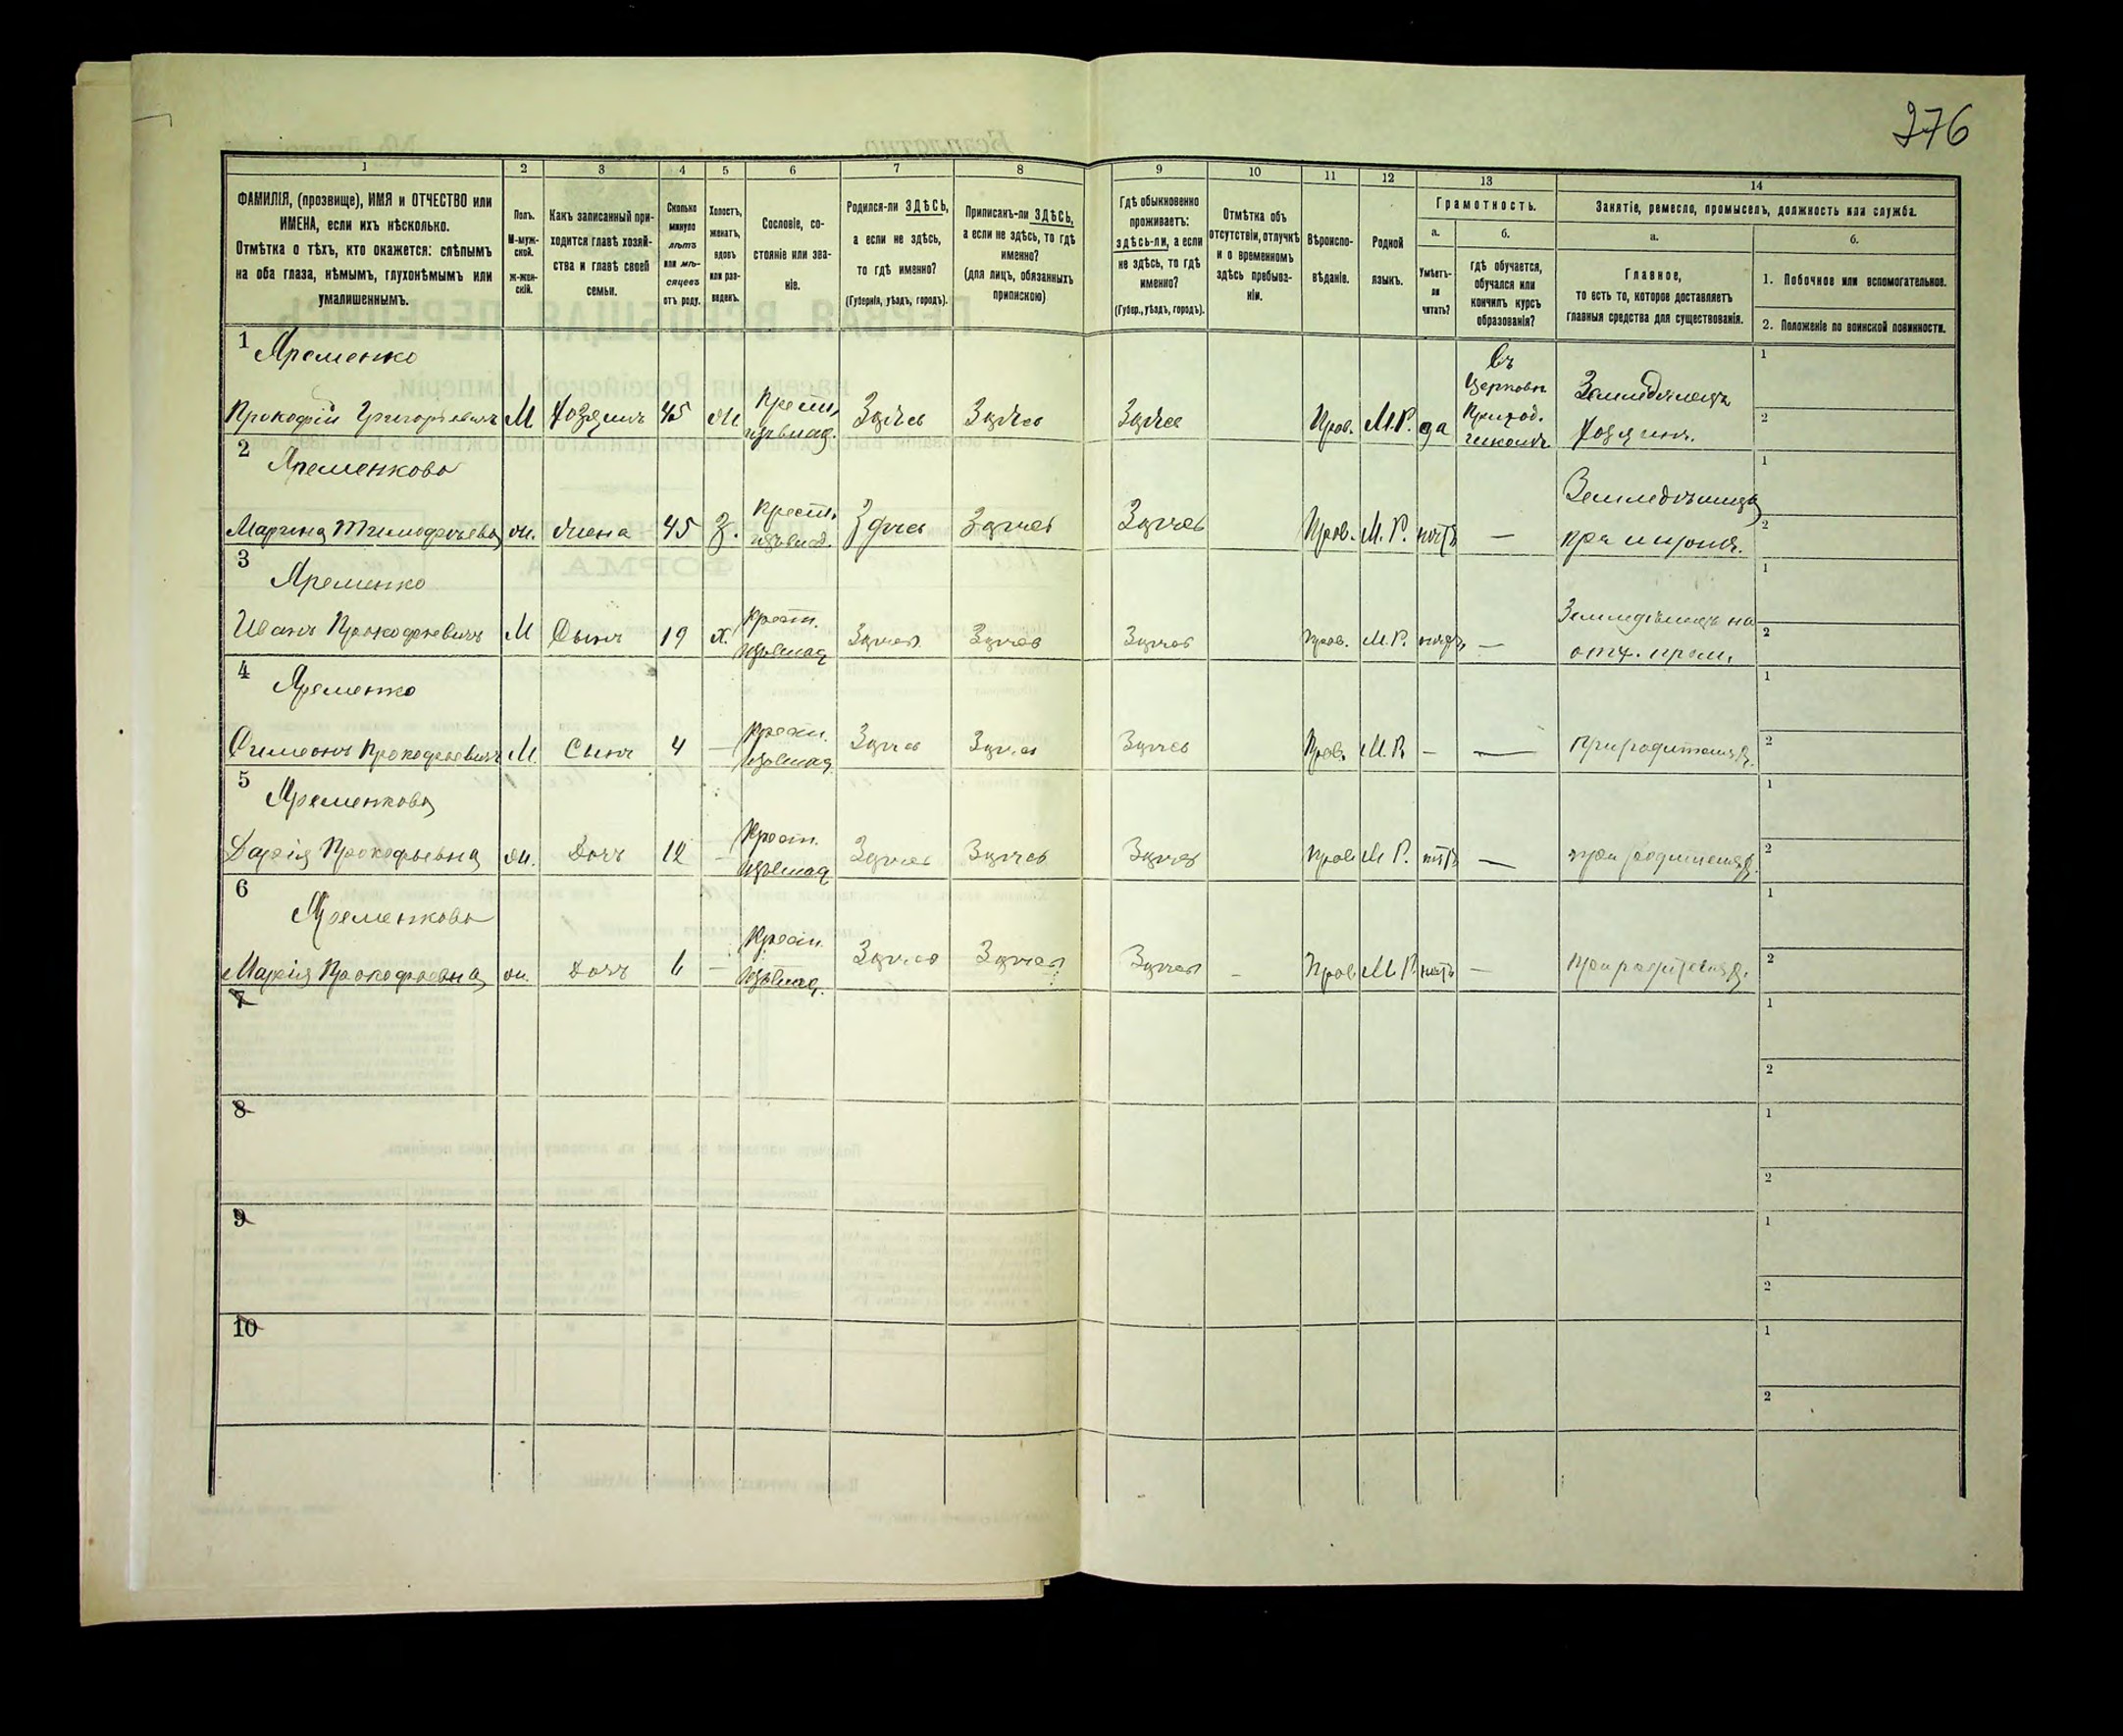 276
1 2 3 4 5 6 7 8 9 10 11 12 13 14
ФАМИЛІЯ, (прозвище), ИМЯ и ОТЧЕСТВО или
ИМЕНА, если ихъ нѣсколько.
Отмѣтка о тѣхъ, кто окажется: слѣпымъ
на оба глаза, нѣмымъ, глухонѣмымъ или
умалишеннымъ.
Полъ.
М-муж-
ской.
ж-жен-
скій.
Какъ записанный при-
ходится главѣ хозяй-
ства и главѣ своей
семьи.
Сколько
минуло
лѣтъ
или мѣ-
сяцевъ
отъ роду.
Холостъ,
женатъ,
вдовъ
или раз-
веденъ.
Сословіе, со-
стояніе или зва-
ніе.
Родился-ли ЗДѢСЬ,
а если не здѣсь,
то гдѣ именно?
(Губернія, уѣздъ, городъ).
Приписанъ-ли ЗДѢСЬ,
а если не здѣсь, то гдѣ
именно?
(для лицъ, обязанныхъ
припискою)
Гдѣ обыкновенно
проживаетъ:
здѣсь-ли, а если
не здѣсь, то гдѣ
именно?
(Губер., уѣздъ, городъ).
Отмѣтка объ
отсутствіи, отлучкѣ
и о временномъ
здѣсь пребыва-
ніи.
Вѣроиспо-
вѣданіе.
Родной
языкъ.
Грамотность.
а.
Умѣетъ-
ли
читать?
б.
гдѣ обучается,
обучался или
кончилъ курсъ
образованія?
Занятіе, ремесло, промыселъ, должность или служба.
а.
Главное,
то есть то, которое доставляетъ
главныя средства для существованія.
б.
1. Побочное или вспомогательное.
2. Положеніе по воинской повинности.
1 Яременко
Прокофій Григорьевичъ М Хозяинъ 45 Ж Крест. изъ влад. Здѣсь Здѣсь Здѣсь Прав. М.Р. да Въ Церковн. Приход. Земледѣлецъ Хозяинъ.
2 Яременкова
Марина Тимофѣева ж. Жена 45 З. Крест. изъ влад. Здѣсь Здѣсь Здѣсь Прав. М.Р. нѣтъ — Земледѣлица при мужѣ.
3 Яременко
Иванъ Прокофіевичъ М Сынъ 19 х. Крест. изъ влад. Здѣсь Здѣсь Здѣсь Прав. М.Р. нѣтъ — Земледѣлецъ
4 Яременко
Симеонъ Прокофіевичъ М. Сынъ 4 — Крест. изъ влад. Здѣсь Здѣсь Здѣсь Прав. М.Р. — — При родителяхъ.
5 Яременкова
Дарія Прокофьевна ж. Дочь 12 — Крест. изъ влад. Здѣсь Здѣсь Здѣсь Прав. М.Р. нѣтъ — при родителяхъ.
6 Яременкова
Марія Прокофіевна ж. Дочь 6 — Крест. изъ влад. Здѣсь Здѣсь Здѣсь — Прав. М.Р. нѣтъ — При родителяхъ.
7
8
9
10